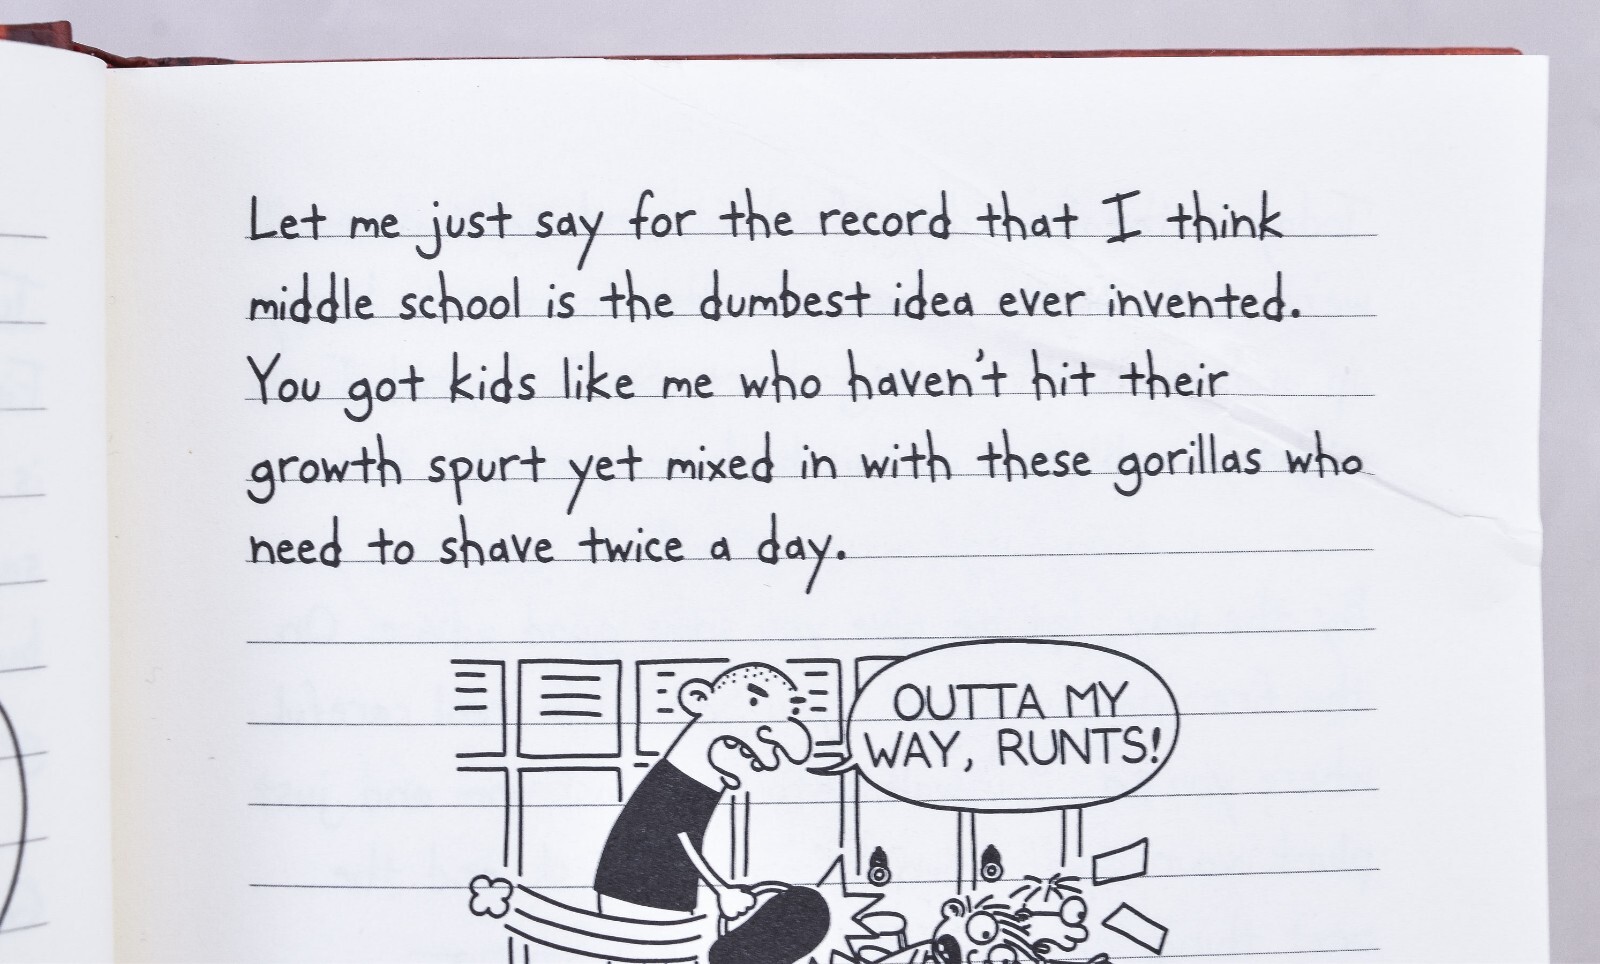 Let me just say for the record that I think
middle school is the dumbest idea ever invented.
You got kids like me who haven't hit their
growth spurt yet mixed in with these gorillas who
need to shave twice a day.
OUTTA MY
WAY, RUNTS!